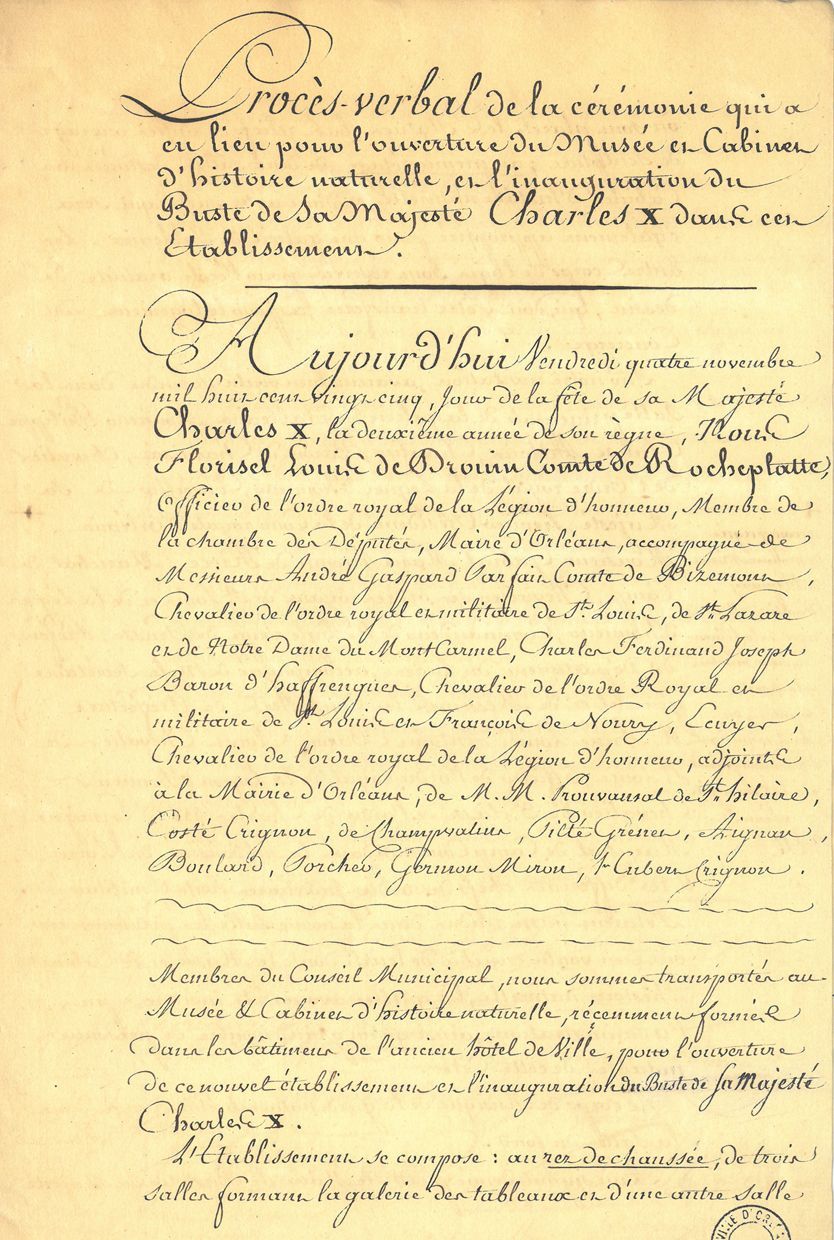 Procès-verbal de la cérémonie qui a
eu lieu pour l'ouverture du Musée et Cabinet
d'histoire naturelle, et l'inauguration du
Buste de Sa Majesté Charles X dans cet
Etablissement.
Aujourd'hui Vendredi quatre novembre
mil huit cent vingt cinq, Jour de la fête de sa Majesté
Charles X, la deuxième année de son règne, Nous
Florisel Louis de Drouin Comte de Rocheplatte,
Officier de l'ordre royal de la Légion d'honneur, Membre de
la chambre des Députés, Maire d'Orléans, accompagné de
Messieurs André Gaspard Parfait Comte de Bizemont,
Chevalier de l'ordre royal et militaire de St. Louis, de St. Lazare
et de Notre Dame du Mont Carmel, Charles Ferdinand Joseph
Baron d'haffrengues, Chevalier de l'ordre Royal et
militaire de St. Louis et François de Noury, Ecuyer,
Chevalier de l'ordre royal de la Légion d'honneur, adjoints
à la Mairie d'Orléans, de M. M. Prouvansal de St. hilaire,
Costé Crignon, de Champvalins, Pilté Grénet, Aignan,
Boulard, Porcher, Germon Miron, & Cubert Crignon.
Membres du Conseil Municipal, nous sommes transportés au
Musée & Cabinet d'histoire naturelle, récemment formés
dans les bâtimens de l'ancien hôtel de Ville, pour l'ouverture
de ce nouvel établissement et l'inauguration du Buste de Sa Majesté
Charles X.
L'Etablissement se compose : au rez de chaussée, de trois
salles formant la galerie des tableaux et d'une autre salle
VILLE D'OR